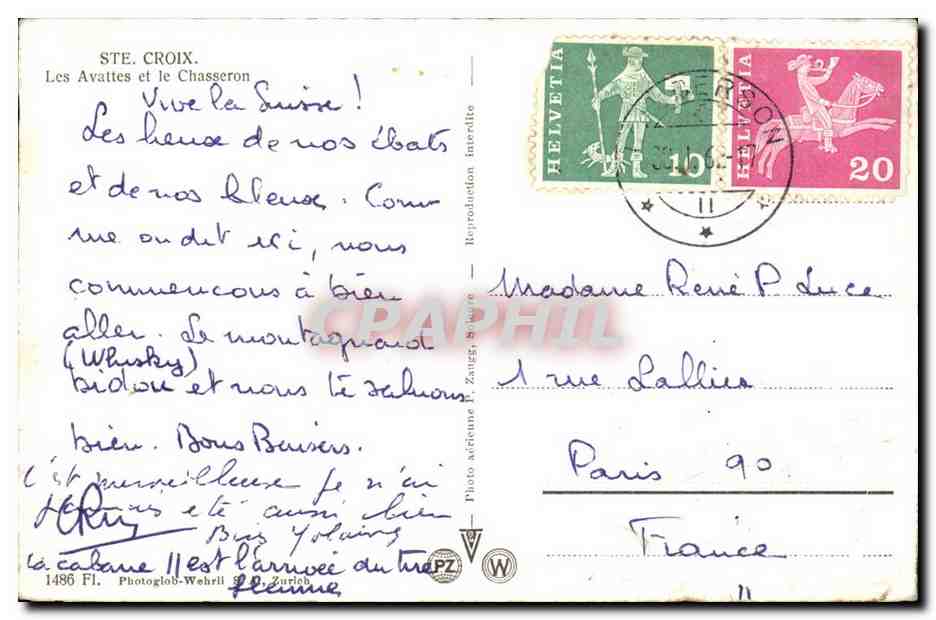 STE. CROIX.
Les Avattes et le Chasseron
Vive la Suisse !
Les lieux de nos ébats
et de nos bleus. Com-
me on dit ici, nous
commencons à bien
aller. Le montagnard
(Whisky)
bidou et nous te saluons
bien. Bons Baisers.
C'est merveilleux je n'ai
jamais été aussi bien
Bises Yolaine
La cabane II est l'arrivée du
1486 Fl. Photoglob-Wehrli S. A., Zurich
Photo aérienne P. Zaugg, Soleure — Reproduction interdite
PZ
W
HELVETIA
10
HELVETIA
20
II
Madame René P. Luce
1 rue Lallier
Paris 9o
France
CPAPHIL